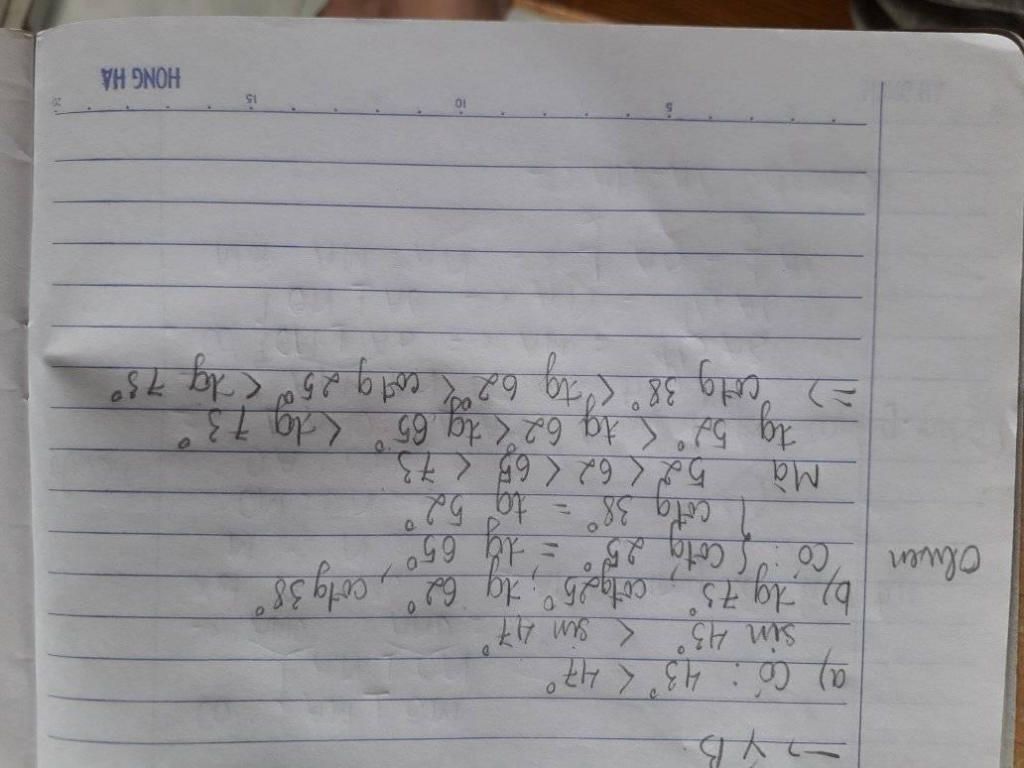 → γ B.
a) Có: 43° < 47°
sin 43° < sin 47°
b) tg 73°, cotg 25°, tg 62°, cotg 38°
Có: { cotg 25° = tg 65°
cotg 38° = tg 52°
Mà 52 < 62 < 65 < 73
tg 52° < tg 62° < tg 65° < tg 73°
=> cotg 38° < tg 62° < cotg 25° < tg 73°
5 10 15 20
HONG HA